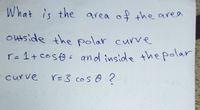 What is the area of the area
outside the polar curve
r= 1+cosθ, and inside the polar
curve r=3 cos θ ?